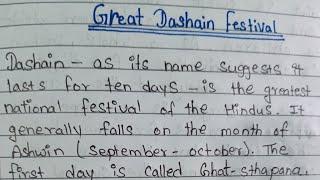 Great Dashain Festival
Dashain - as its name suggests it
lasts for ten days - is the greatest
national festival of the Hindus. It
generally falls on the month of
Ashwin (September - october). The
first day is called Ghat-sthapana.